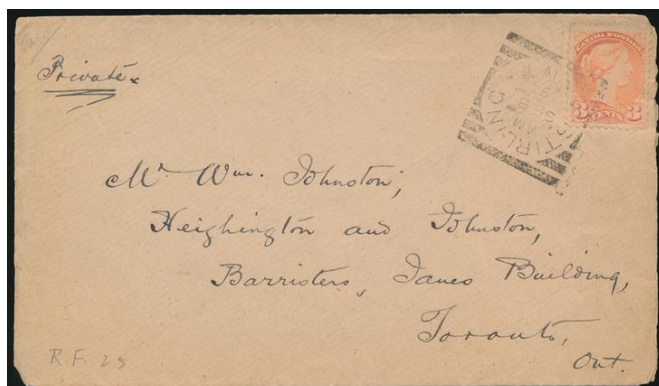 Private
CANADA POSTAGE
3 CENTS 3
STIRLING
AM
Mr Wm. Johnston,
Heighington and Johnston,
Barristers, Janes Building,
Toronto,
Ont.
R.F. 25